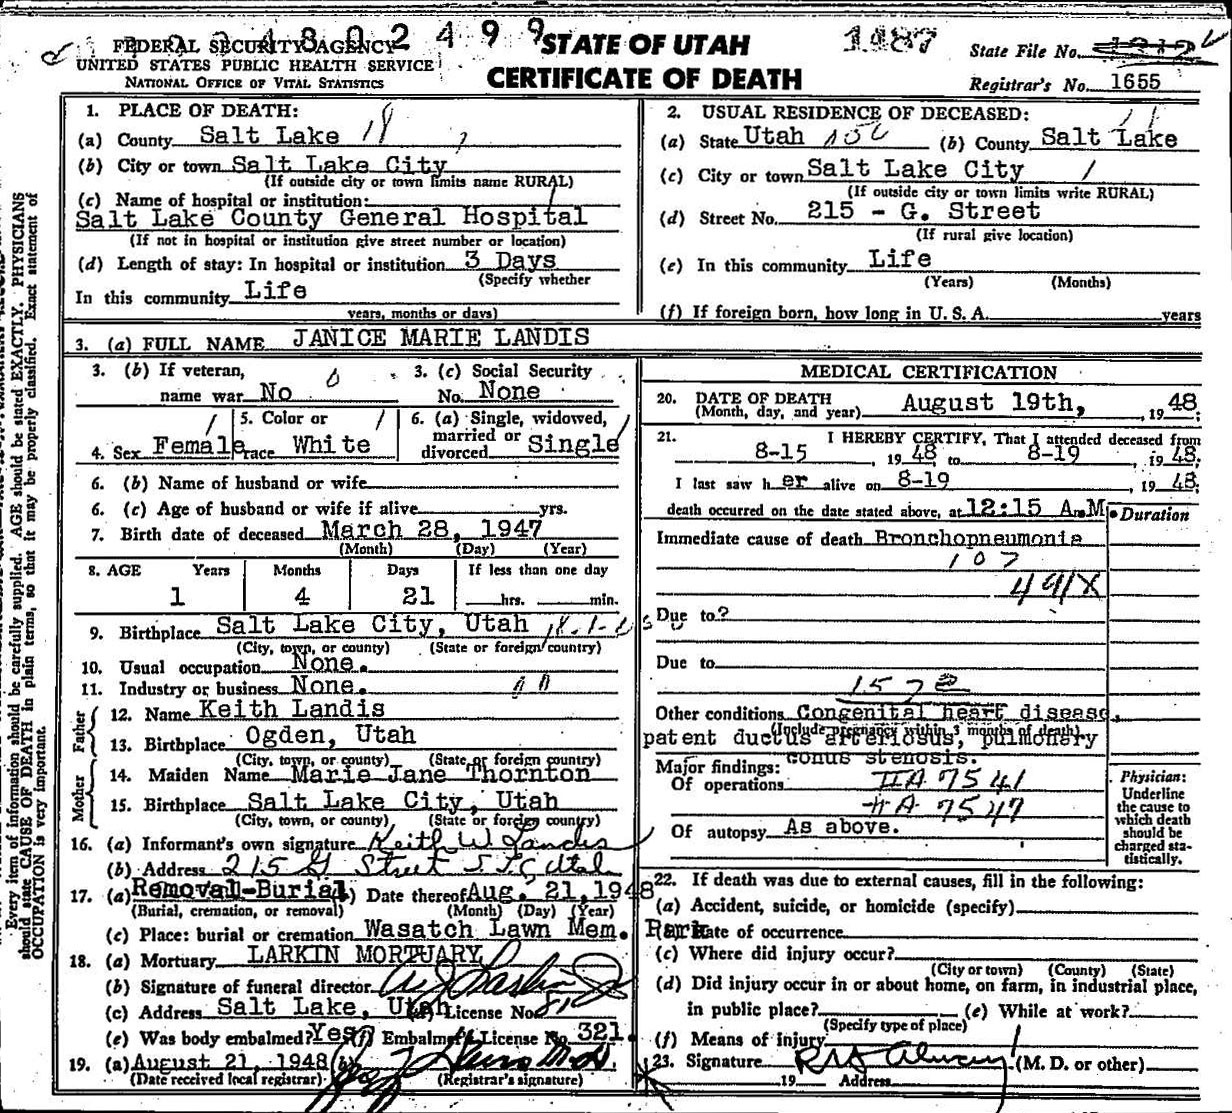 4 8 0 2 4 9 9
FEDERAL SECURITY AGENCY
UNITED STATES PUBLIC HEALTH SERVICE
NATIONAL OFFICE OF VITAL STATISTICS
STATE OF UTAH
CERTIFICATE OF DEATH
1487
State File No.
Registrar's No. 1655
Every item of information should be carefully supplied. AGE should be stated EXACTLY. PHYSICIANS
should state CAUSE OF DEATH in plain terms, so that it may be properly classified. Exact statement of
OCCUPATION is very important.
1. PLACE OF DEATH:
(a) County Salt Lake 18
(b) City or town Salt Lake City
(If outside city or town limits name RURAL)
(c) Name of hospital or institution:
Salt Lake County General Hospital
(If not in hospital or institution give street number or location)
(d) Length of stay: In hospital or institution 3 Days
(Specify whether
In this community Life
years, months or days)
2. USUAL RESIDENCE OF DECEASED:
(a) State Utah (b) County Salt Lake
(c) City or town Salt Lake City 1
(If outside city or town limits write RURAL)
(d) Street No. 215 - G. Street
(If rural give location)
(e) In this community Life
(Years) (Months)
(f) If foreign born, how long in U. S. A. years
3. (a) FULL NAME JANICE MARIE LANDIS
3. (b) If veteran,
name war No 0
3. (c) Social Security
No. None
4. Sex Female
5. Color or
race White
6. (a) Single, widowed,
married or
divorced Single
6. (b) Name of husband or wife
6. (c) Age of husband or wife if alive yrs.
7. Birth date of deceased March 28, 1947
(Month) (Day) (Year)
8. AGE Years Months Days If less than one day
1 4 21 hrs. min.
9. Birthplace Salt Lake City, Utah
(City, town, or county) (State or foreign country)
10. Usual occupation None.
11. Industry or business None.
Father
12. Name Keith Landis
13. Birthplace Ogden, Utah
(City, town, or county) (State or foreign country)
Mother
14. Maiden Name Marie Jane Thornton
15. Birthplace Salt Lake City, Utah
(City, town, or county) (State or foreign country)
16. (a) Informant's own signature Keith W Landis
(b) Address 215 G Street S.L.C Utah
17. (a) Removal-Burial) Date thereof Aug. 21, 1948
(Burial, cremation, or removal) (Month) (Day) (Year)
(c) Place: burial or cremation Wasatch Lawn Mem. Park
18. (a) Mortuary LARKIN MORTUARY
(b) Signature of funeral director
(c) Address Salt Lake, Utah (d) License No. 81
(e) Was body embalmed? Yes (f) Embalmer's License No. 321.
19. (a) August 21, 1948 (b)
(Date received local registrar) (Registrar's signature)
MEDICAL CERTIFICATION
20. DATE OF DEATH
(Month, day, and year) August 19th, , 19 48;
21. I HEREBY CERTIFY, That I attended deceased from
8-15 , 19 48 to 8-19 , 19 48;
I last saw h er alive on 8-19 , 19 48;
death occurred on the date stated above, at 12:15 A.M.
Duration
Immediate cause of death Bronchopneumonia
107
491X
Due to?
Due to
157e
Other conditions Congenital heart disease,
(Include pregnancy within 3 months of death)
patent ductus arteriosus, pulmonary
conus stenosis.
Major findings:
Of operations IIA 7541
IIA 7547
Of autopsy As above.
Physician:
Underline
the cause to
which death
should be
charged sta-
tistically.
22. If death was due to external causes, fill in the following:
(a) Accident, suicide, or homicide (specify)
(b) Date of occurrence
(c) Where did injury occur?
(City or town) (County) (State)
(d) Did injury occur in or about home, on farm, in industrial place,
in public place? (e) While at work?
(Specify type of place)
(f) Means of injury
23. Signature (M. D. or other)
19 Address